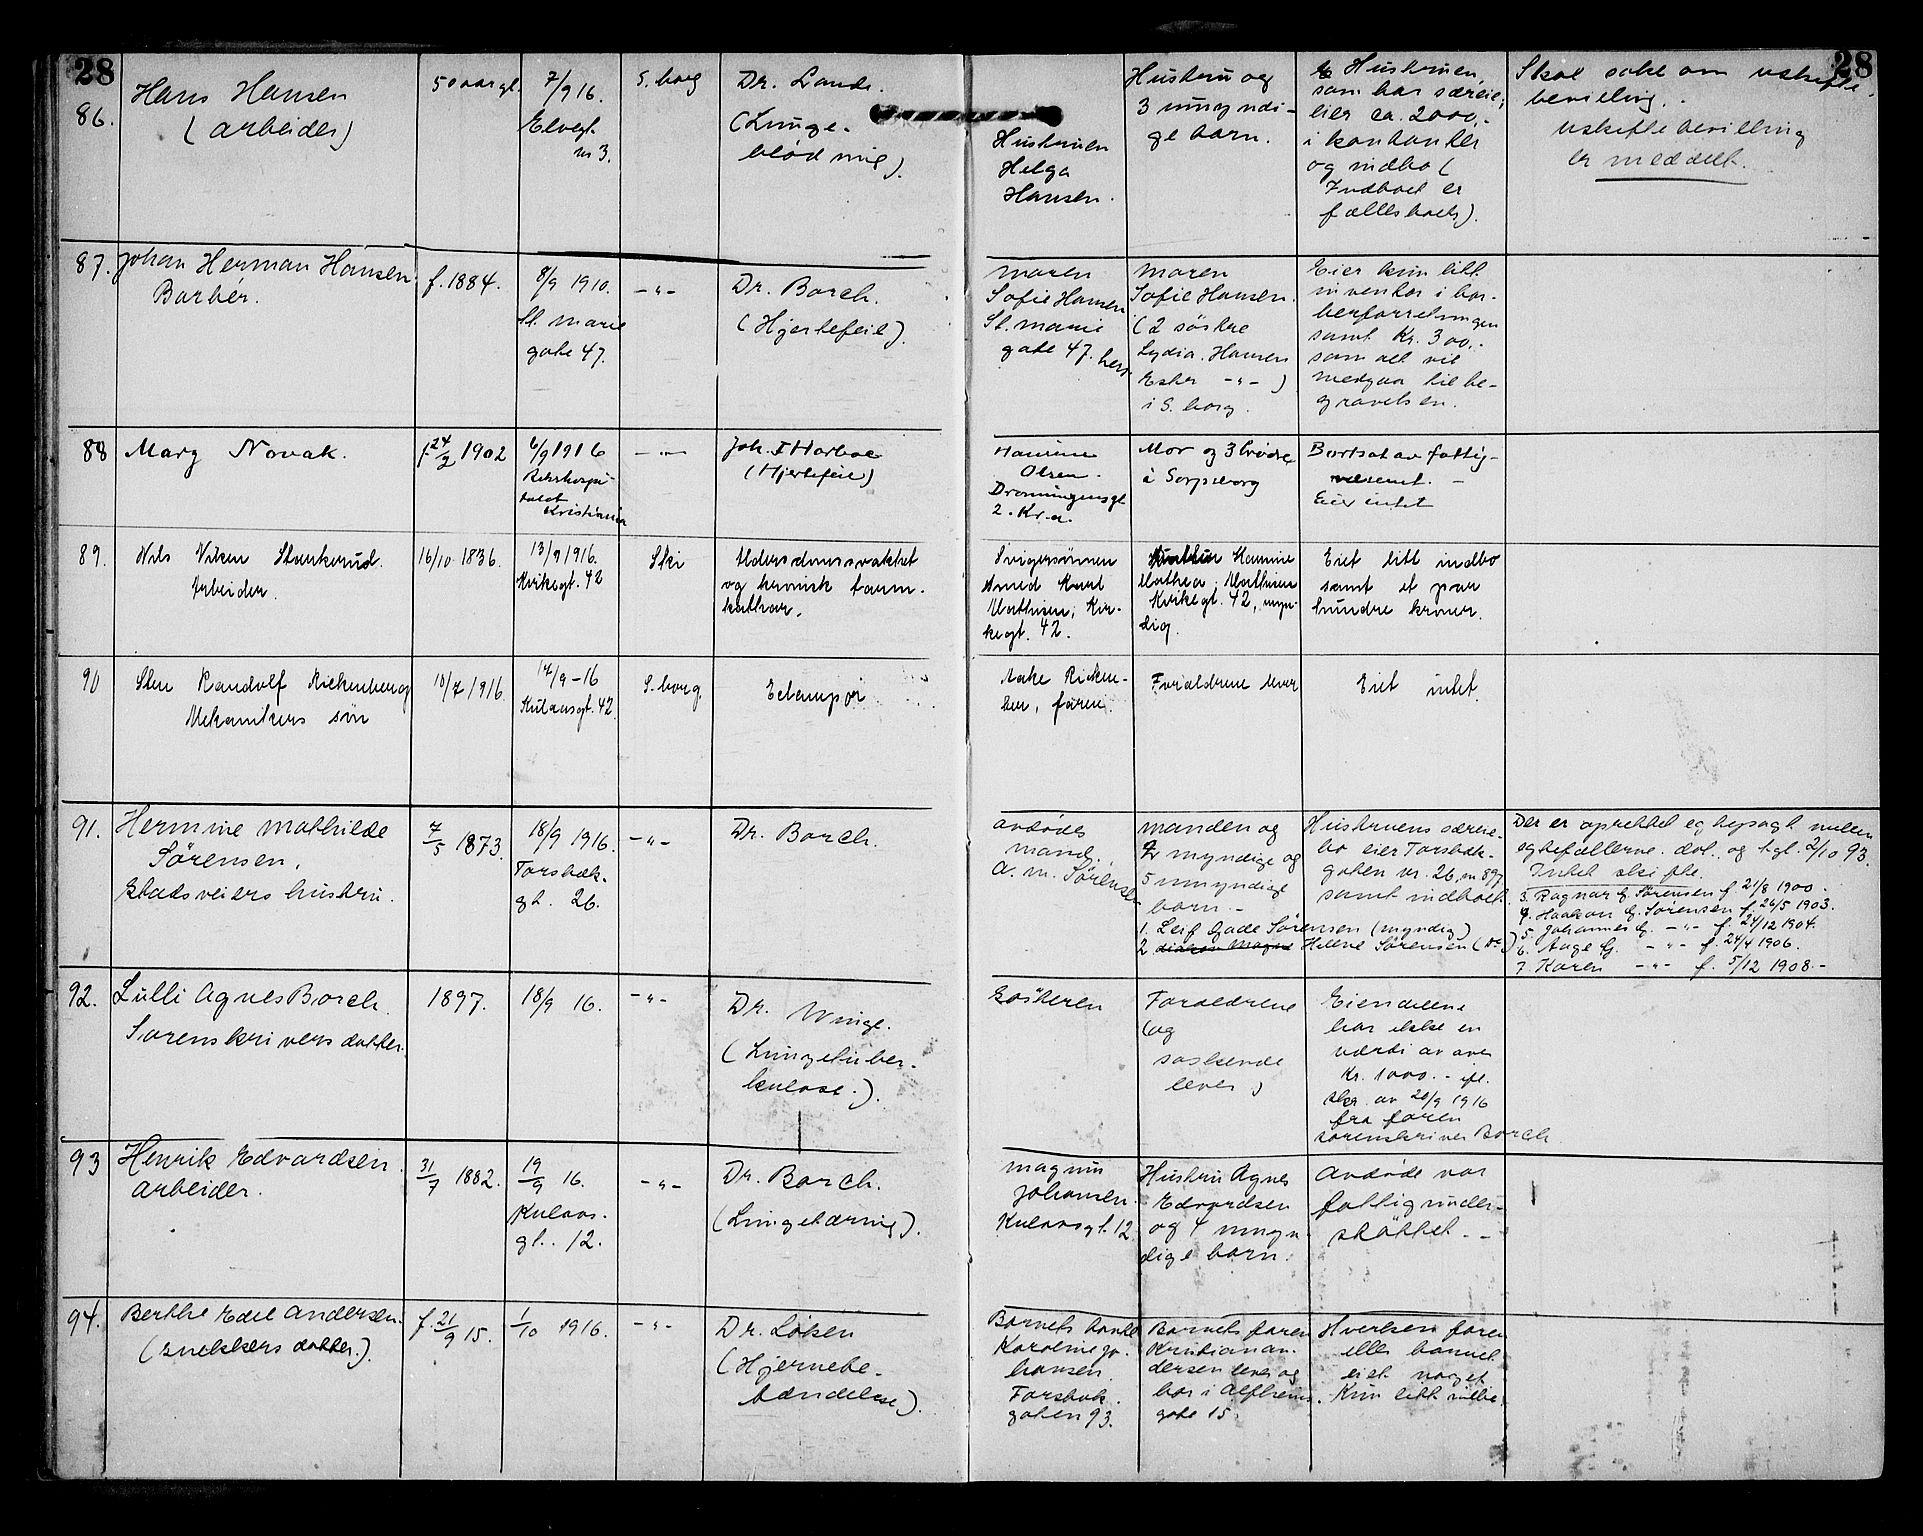 28
28
86.
Hans Hansen
(arbeider)
50 aar gl.
7/9 16.
Elvegt.
nr 3.
S. borg
Dr. Lands.
(Lunge-
blødning).
Hustruen
Helga
Hansen.
Hustru og
3 umyndi-
ge barn.
Hustruen,
som har særeie,
eier ca. 2000,-
i kontanter
og indbo (
Indboet er
fællesboets).
Skal søke om uskifte
bevilling.
uskiftebevilling
er meddelt.
87.
Johan Herman Hansen.
Barbér.
f. 1884.
8/9 1910.
St. Marie
gate 47.
-"-
Dr. Borch.
(Hjertefeil).
Maren
Sofie Hansen
St. Marie
gate 47. her.
Maren
Sofie Hansen.
(2 søstre
Lydia Hansen
Ester -"- )
i S. borg.
Eier kun litt
inventar i bar-
berforretningen
samt Kr. 300,-
som alt vil
medgaa til be-
gravelsen.
88
Marg Novak.
f. 24/2 1902
6/9 1916
Rikshospi-
talet
Kristiania
-"-
Joh. F Harboe
(Hjertefeil)
Olsen.
Dronningensgt
2. Kr.a.
Mor og 3 brødre
i Sarpsborg
Bortsat av fattig-
væsenet. -
Eier intet
89.
Nils Nilsen Stenkorud.
Arbeider.
16/10 1836.
13/9 1916.
Kirkegt. 42
Ski
Alderdomssvakhet
og kronisk tarm-
kathar.
Svigersønnen
Smed Karl
Mathisen, Kir-
kegt. 42.
Hannine
Mathea Mathisen
Kirkegt. 42, myn-
dig.
Eiet litt indbo
samt et par
hundre kroner.
90
Sten Randolf Rickenberg
Mekanikers søn
10/7 1916.
14/9-16
Kulaasgt. 42
S. borg
Eclampsi
Aake Ricken-
ber, faren.
Forældrene lever
Eiet intet
91.
Hermine Mathilde
Sørensen,
Stadsveiers hustru.
7/5 1873.
18/9 1916.
Torsbæk-
gt. 26.
-"-
Dr. Borch.
avdødes
mand,
A. M. Sørensen
Manden og
2 myndige og
5 umyndige
barn. -
1. Leif Gade Sørensen (myndig)
2. Helene Sørensen (do)
Hustruens særeie-
bo eier Torsbæk-
gaten nr. 26, m 897
samt indboet.
Der er oprettet egtepagt mellem
egtefællerne dat. og tgl. 2/10 93.
Intet skifte.
3. Ragnar G. Sørensen f. 21/8 1900.
4. Haakon G. Sørensen f. 26/5 1903.
5. Johannes G. -"- f. 24/12 1904.
6. Aage G. -"- f. 24/4 1906.
7. Karen -"- f. 5/12 1908.-
92.
Lulli Agnes Borch.
Sorenskrivers datter.
1897.
18/9 16.
-"-
Dr. Winge.
(Lungetuber-
kulose.).
Søsteren
Forældrene
(og
søskende
lever)
Eiendelene
har ikke en
værdi av over
Kr. 1000.- ifl.
skr. av 20/9 1916
fra faren
sorenskriver Borch.
93
Henrik Edvardsen.
Arbeider.
31/7 1882.
19/9 16.
Kulaas-
gt. 12.
-"-
Dr. Borch.
(Lungetæring).
Magnus
Johansen.
Kulaasgt. 12
Hustru Agnes
Edvardsen
og 4 umyn
dige barn.
Avdøde var
fattigunder-
støttet. -
94.
Berthe Edel Andersen.
(Snekkers datter.).
f. 21/9 15.
1/10 1916.
-"-
Dr. Løken
(Hjernebe-
tændelse).
Barnets tante
Karoline Jo-
hansen.
Torsbæk.
gaten 93.
Barnets faren
Kristian An-
dersen lever og
bor i Alfheims-
gate 15.
Hverken faren
eller barnet
eiet noget.
Kun litt indbo.